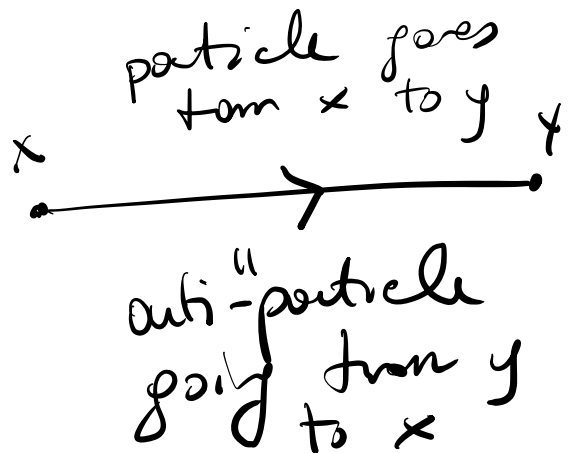 particle goes
from x to y
x
y
"
anti-particle
going from y
to x